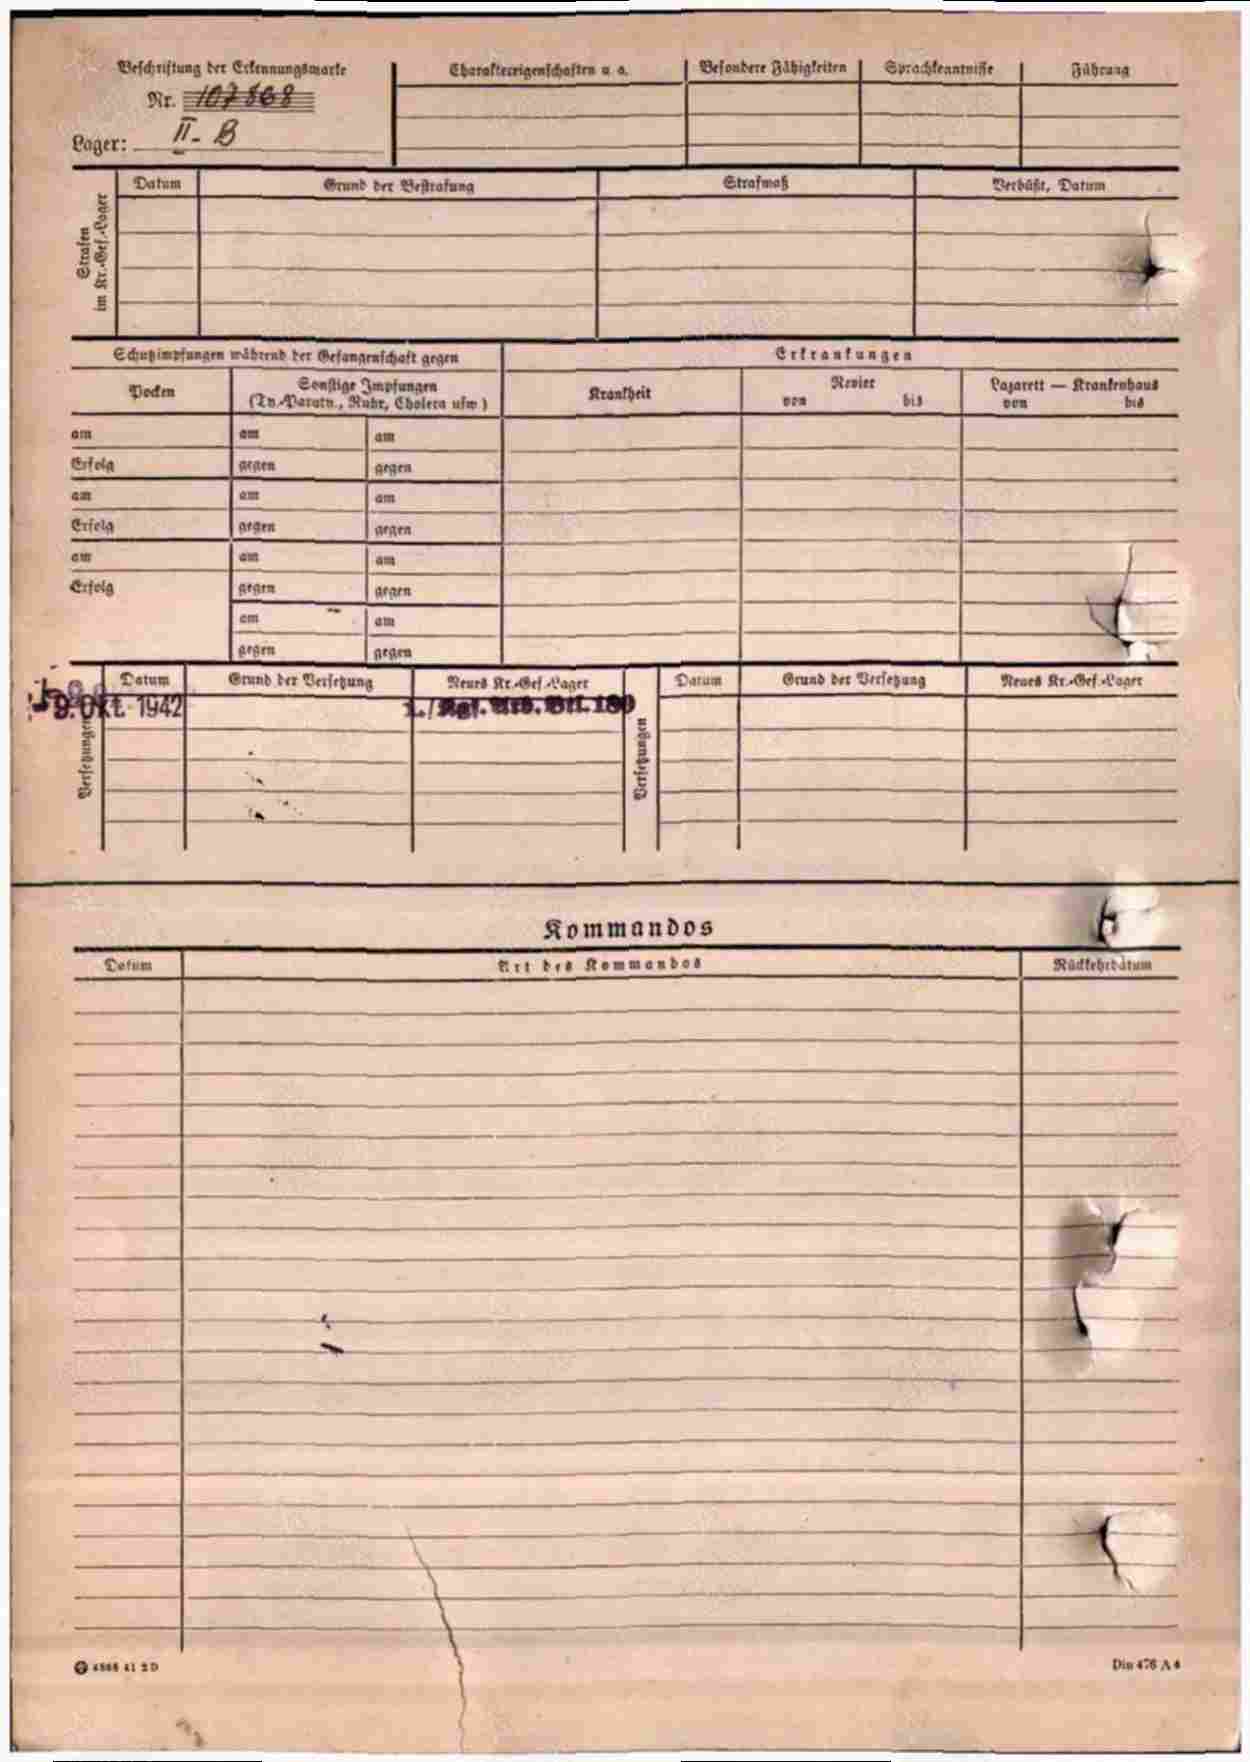 Beschriftung der Erkennungsmarke
Nr. 107868
Lager: II-B
Charaktereigenschaften u. a.
Besondere Fähigkeiten
Sprachkenntnisse
Führung
Strafen
im Kr.-Gef.-Lager
Datum
Grund der Bestrafung
Strafmaß
Verbüßt, Datum
Schutzimpfungen während der Gefangenschaft gegen
Erkrankungen
Pocken
Sonstige Impfungen
(Ty.-Paraty., Ruhr, Cholera usw)
Krankheit
Revier
von bis
Lazarett — Krankenhaus
von bis
am am am
Erfolg gegen gegen
am am am
Erfolg gegen gegen
am am am
Erfolg gegen gegen
am am
gegen gegen
Versetzungen
Datum
Grund der Versetzung
Neues Kr.-Gef.-Lager
9. Okt. 1942
Btl. 180
Versetzungen
Datum
Grund der Versetzung
Neues Kr.-Gef.-Lager
Kommandos
Datum
Art des Kommandos
Rückkehrdatum
41 2 D
Din 476 A 4